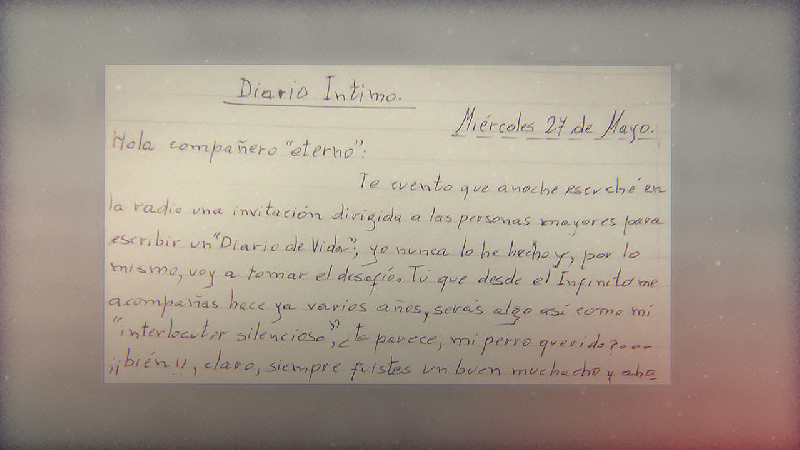 Diario Intimo.
Miércoles 27 de Mayo.
Hola compañero "eterno":
Te cuento que anoche escuché en
la radio una invitación dirigida a las personas mayores para
escribir un "Diario de Vida", yo nunca lo he hecho y, por lo
mismo, voy a tomar el desafío. Tú que desde el Infinito me
acompañas hace ya varios años, serás algo así como mi
"interlocutor silencioso", ¿te parece, mi perro querido?...
¡¡bién!!, claro, siempre fuistes un buen muchacho y aho-